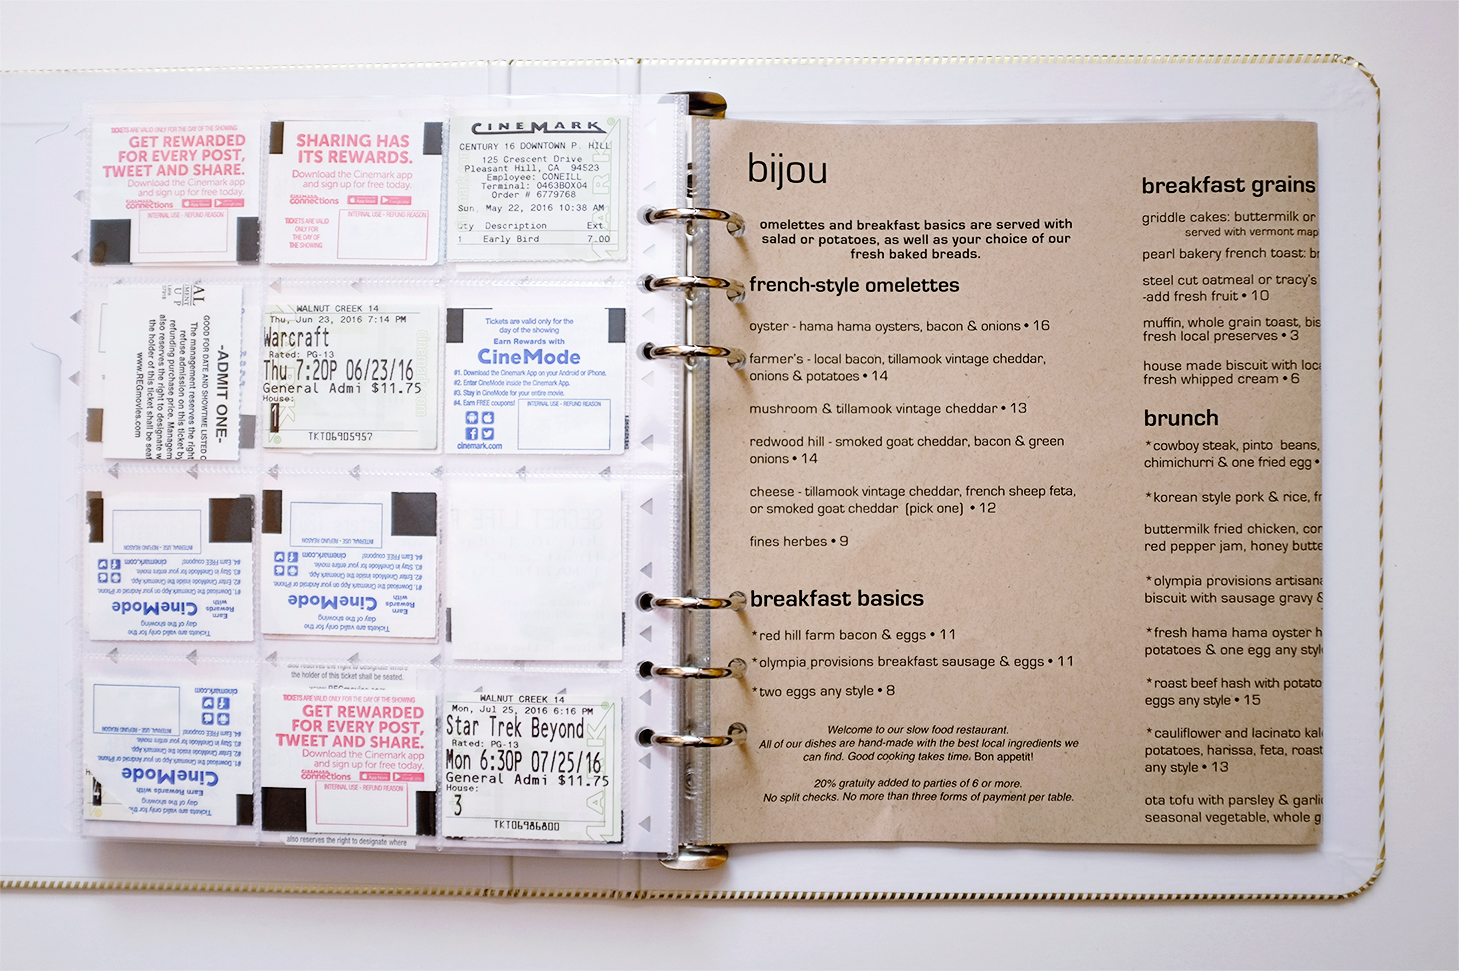 TICKETS ARE VALID ONLY FOR THE DAY OF THE SHOWING
GET REWARDED
FOR EVERY POST,
TWEET AND SHARE.
Download the Cinemark app
and sign up for free today.
CINEMARK
connections
INTERNAL USE - REFUND REASON
SHARING HAS
ITS REWARDS.
Download the Cinemark app
and sign up for free today.
CINEMARK
connections
TICKETS ARE VALID
ONLY FOR
THE DAY OF
THE SHOWING
INTERNAL USE - REFUND REASON
CINEMARK
CENTURY 16 DOWNTOWN P. HILL
125 Crescent Drive
Pleasant Hill, CA 94523
Employee: CONEILL
Terminal: 0463BOX04
Order # 6779768
Sun. May 22, 2016 10:38 AM
Qty Description Ext.
1 Early Bird 7.00
-ADMIT ONE-
GOOD FOR DATE AND SHOWTIME LISTED
The management reserves the right
refuse admission on this ticket by
refunding purchase price. Managem
also reserves the right to designate w
the holder of this ticket shall be seat
www.REGmovies.com
WALNUT CREEK 14
Thu, Jun 23, 2016 7:14 PM
Warcraft
Rated: PG-13
Thu 7:20P 06/23/16
General Admi $11.75
House:
1
TKT06905957
Tickets are valid only for the
day of the showing
Earn Rewards with
CineMode
#1. Download the Cinemark App on your Android or iPhone.
#2. Enter CineMode inside the Cinemark App.
#3. Stay in CineMode for your entire movie.
#4. Earn FREE coupons!
INTERNAL USE - REFUND REASON
cinemark.com
Tickets are valid only for the
day of the showing
Earn
Rewards with
CineMode
#1. Download the Cinemark App on your Android or iPhone.
#2. Enter CineMode inside the Cinemark App.
#3. Stay in CineMode for your entire movie.
#4. Earn FREE coupons!
cinemark.com
INTERNAL USE - REFUND REASON
Tickets are valid only for the
day of the showing
Earn
Rewards with
CineMode
#1. Download the Cinemark App on your Android or iPhone.
#2. Enter CineMode inside the Cinemark App.
#3. Stay in CineMode for your entire movie.
#4. Earn FREE coupons!
cinemark.com
INTERNAL USE - REFUND REASON
Tickets are valid only for the
day of the showing
Earn Rewards with
CineMode
#1. Download the Cinemark App on your Android or iPhone.
#2. Enter CineMode inside the Cinemark App.
#3. Stay in CineMode for your entire movie.
#4. Earn FREE coupons!
INTERNAL USE - REFUND REASON
cinemark.com
also reserves the right to designate where
the holder of this ticket shall be seated.
TICKETS ARE VALID ONLY FOR THE DAY OF THE SHOWING
GET REWARDED
FOR EVERY POST,
TWEET AND SHARE.
Download the Cinemark app
and sign up for free today.
CINEMARK
connections
INTERNAL USE - REFUND REASON
also reserves the right to designate where
WALNUT CREEK 14
Mon, Jul 25, 2016 6:16 PM
Star Trek Beyond
Rated: PG-13
Mon 6:30P 07/25/16
General Admi $11.75
House:
3
TKT06986800
bijou
omelettes and breakfast basics are served with
salad or potatoes, as well as your choice of our
fresh baked breads.
french-style omelettes
oyster - hama hama oysters, bacon & onions • 16
farmer's - local bacon, tillamook vintage cheddar,
onions & potatoes • 14
mushroom & tillamook vintage cheddar • 13
redwood hill - smoked goat cheddar, bacon & green
onions • 14
cheese - tillamook vintage cheddar, french sheep feta,
or smoked goat cheddar (pick one) • 12
fines herbes • 9
breakfast basics
*red hill farm bacon & eggs • 11
*olympia provisions breakfast sausage & eggs • 11
*two eggs any style • 8
Welcome to our slow food restaurant.
All of our dishes are hand-made with the best local ingredients we
can find. Good cooking takes time. Bon appetit!
20% gratuity added to parties of 6 or more.
No split checks. No more than three forms of payment per table.
breakfast grains
griddle cakes: buttermilk or
served with vermont map
pearl bakery french toast: br
steel cut oatmeal or tracy's
-add fresh fruit • 10
muffin, whole grain toast, bis
fresh local preserves • 3
house made biscuit with loca
fresh whipped cream • 6
brunch
*cowboy steak, pinto beans,
chimichurri & one fried egg •
*korean style pork & rice, fr
buttermilk fried chicken, cor
red pepper jam, honey butte
*olympia provisions artisana
biscuit with sausage gravy &
*fresh hama hama oyster h
potatoes & one egg any style
*roast beef hash with potato
eggs any style • 15
*cauliflower and lacinato kale
potatoes, harissa, feta, roast
any style • 13
ota tofu with parsley & garlic
seasonal vegetable, whole g